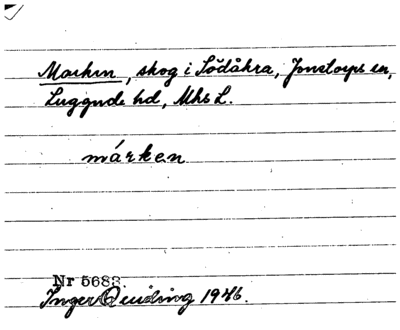 Marken, skog i Södåkra, Jonstorps sn,
Luggude hd, Mhs L.
márken
Nr 5683.
Inger 1946.